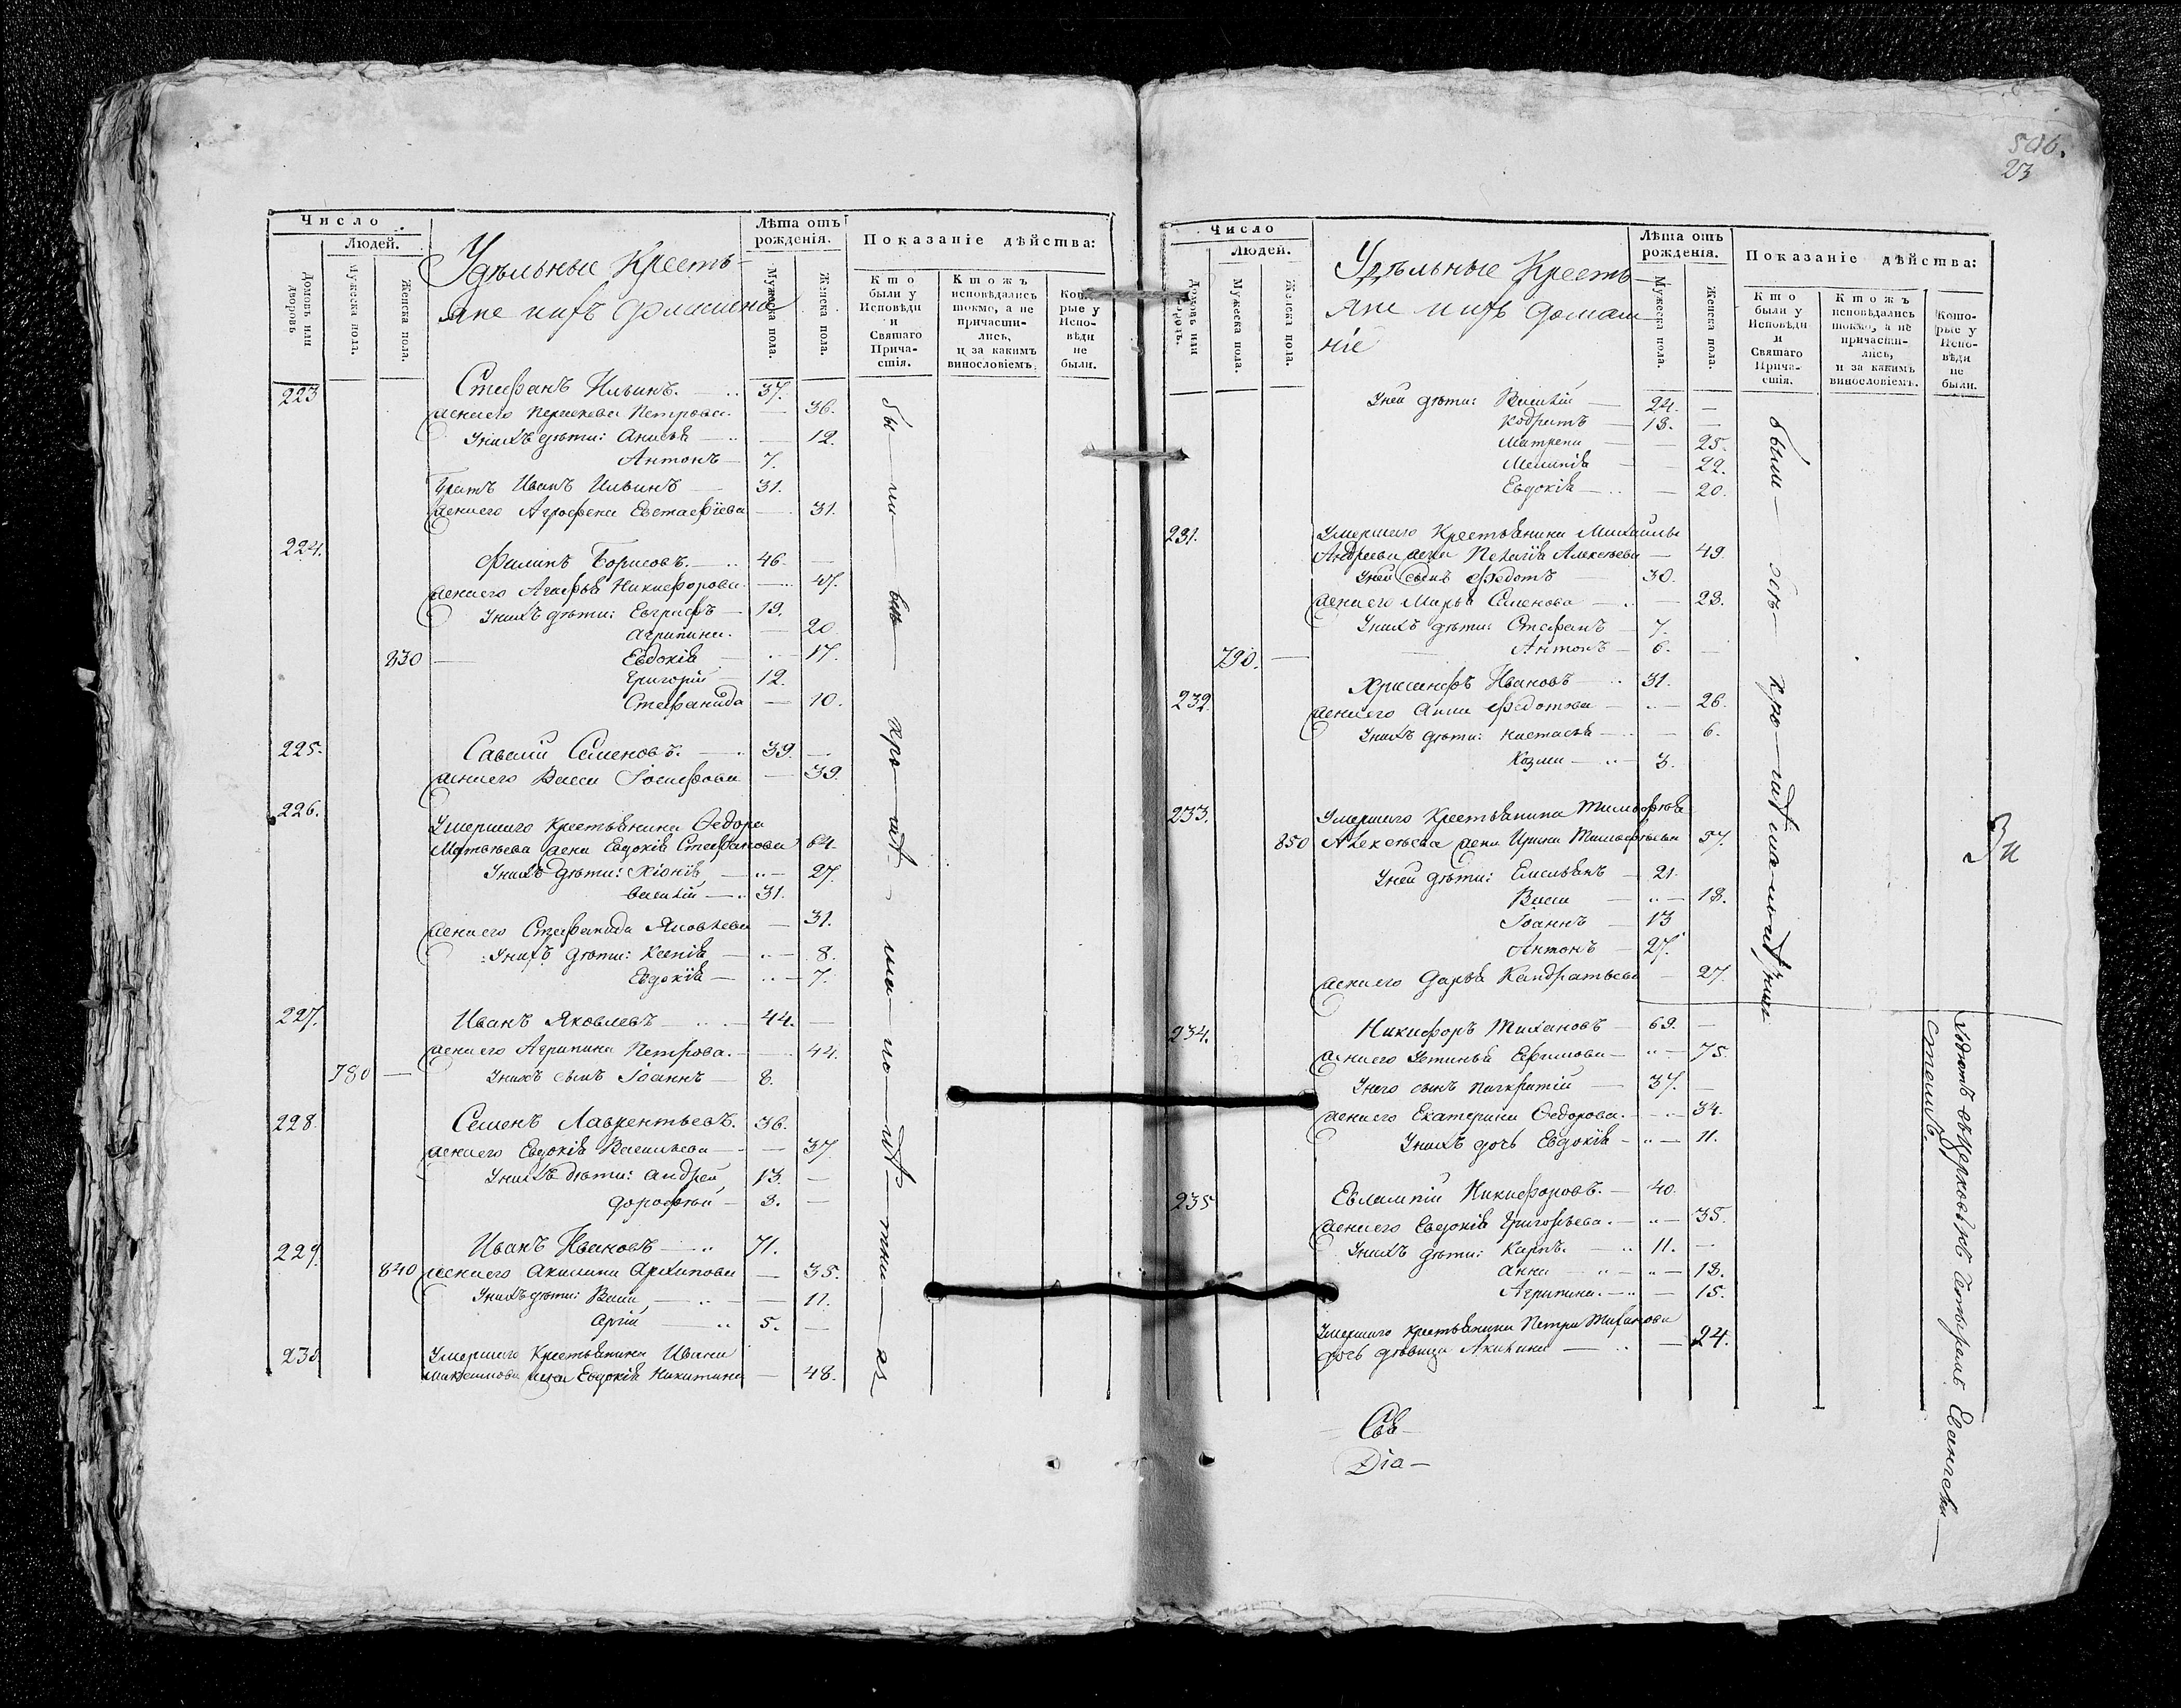 Число
Людей.
Домовъ или дворовъ
Мужеска пола.
Женска пола.
Удѣльные Кресть-
яне ихъ домашние
Лѣта отъ рождения.
Мужеска пола.
Женска пола.
Показаніе дѣйства:
Кто были у Исповѣди и Святаго Причастія.
Ктожъ исповѣдались токмо, а не причастились, и за какимъ винословіемъ.
Которые у Исповѣди не были.
223 Стефанъ Ильинъ. 37.
жена его Параскева Петрова. 36.
У нихъ дѣти: Анисья 12.
Антонъ 7.
Братъ Иванъ Ильинъ 31.
жена его Агрофена Евстафіева 31.
224. Филипъ Борисовъ. 46.
жена его Агафья Никифорова 47.
У нихъ дѣти: Евграфъ 19.
Агрипина. 20
830 Евдокія 17.
Григорій 12.
Стефанида 10.
225. Савелій Семеновъ. 39.
жена его Васса Іосифова 39.
226. Умершаго Крестьянина Ѳедора
Матвѣева жена Евдокія Стефанова 64.
У нихъ дѣти: Хіонія 27.
Василій 31.
жена его Стефанида Яковлева 31.
У нихъ дѣти: Ксенія 8.
Евдокія 7.
227. Иванъ Яковлевъ 44.
жена его Агрипина Петрова. 44.
780 У нихъ сынъ Іоаннъ 8.
228. Семенъ Лаврентьевъ. 36.
жена его Евдокія Васильева 37.
У нихъ дѣти: Андрей 13.
Дорофей 3.
229. Иванъ Ивановъ 71.
840 жена его Акилина Архипова 35.
У нихъ дѣти: Васса 11.
Сргій 5.
230. Умершаго Крестьянина Ивана
Максимова жена Евдокія Никитина 48.
бы-ли
506.
23
Число
Людей.
Домовъ или дворовъ.
Мужеска пола.
Женска пола.
Удѣльные Кресть-
яне ихъ домаш-
ніе
Лѣта отъ рождения.
Мужеска пола.
Женска пола.
Показаніе дѣйства:
Кто были у Исповѣди и Святаго Причастія.
Ктожъ исповѣдались токмо, а не причастились, и за какимъ винословіемъ.
Которые у Исповѣди не были.
У ней дѣти: Василій 24.
Кодратъ 18.
Матрена 25.
Меланія 22.
Евдокія 20.
231. Умершаго Крестьянина Михаила
Андреева жена Пелагія Алексѣева 49.
У ней сынъ Федотъ 30.
жена его Марья Семенова 28.
У нихъ дѣти: Стефанъ 7.
790. Антонъ 6.
232. Хрисанфъ Ивановъ 31.
жена его Анна Федотова 26.
У нихъ дѣти: Настасья 6.
Козма 3.
233. Умершаго Крестьянина Тимофея
850 Алексѣева жена Ирина Тимофеева 57.
У ней дѣти: Емельянъ 21.
Васса 18.
Іоаннъ 13
Антонъ 27.
жена его Дарья Кандратьева 27.
234. Никифоръ Тихановъ 69.
жена его Устинья Ефимова 75.
У него сынъ Панкратій 37.
жена его Екатерина Ѳедорова. 34.
У нихъ дочь Евдокія 11.
235 Евлампій Никифоровъ. 40.
жена его Евдокія Григорьева. 35.
У нихъ дѣти: Карпъ. 11.
Анна 18.
Агрипина. 15.
Умершаго крестьянина Петра Тиханова
дочь дѣвица Акилина 24.
были
Свя-
Dіа-